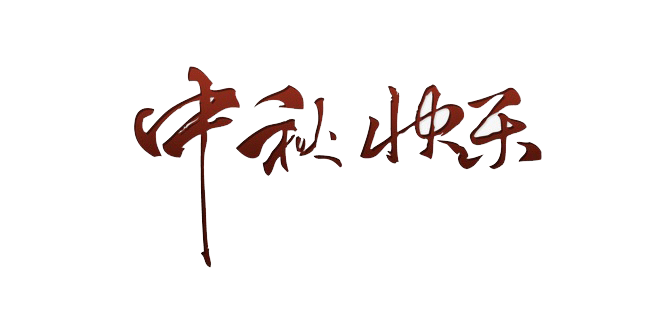 中秋快乐